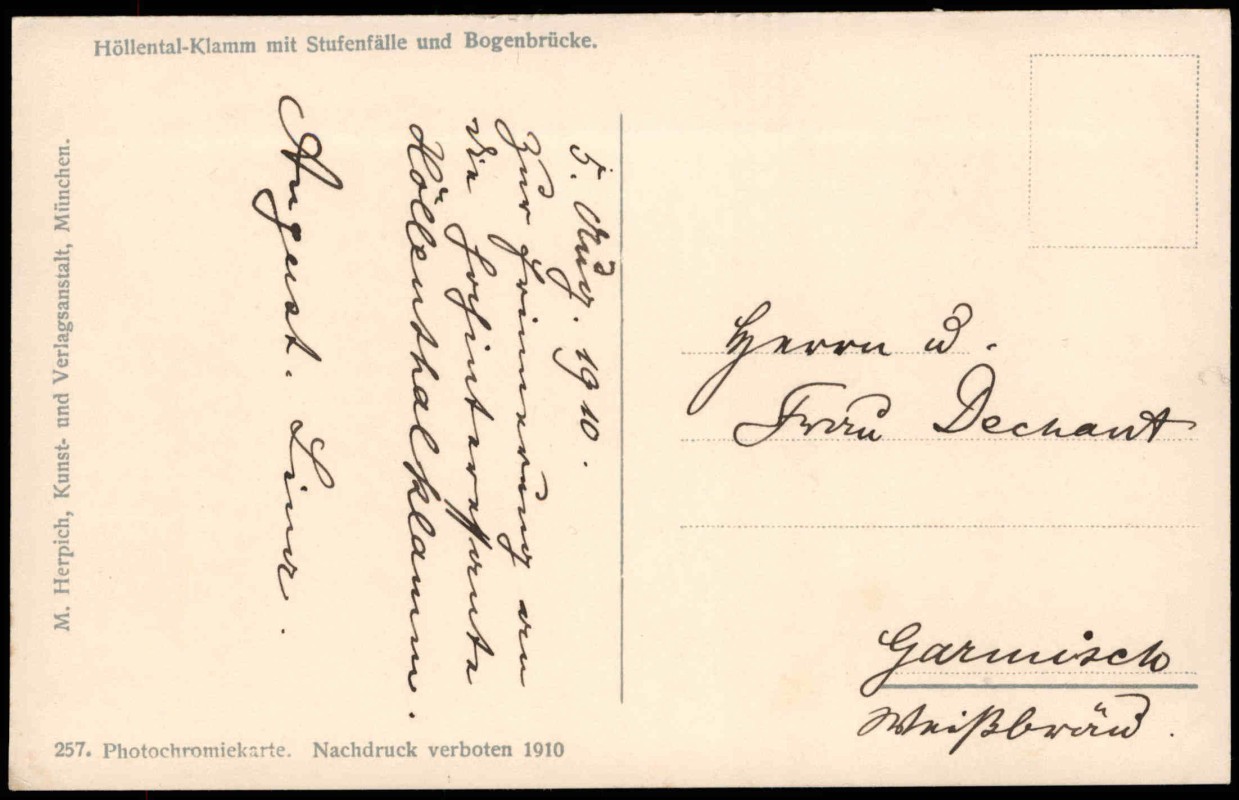 Höllental-Klamm mit Stufenfälle und Bogenbrücke.
M. Herpich, Kunst- und Verlagsanstalt, München.
5. Aug. 1910.
Zur Erinnerung an
die hochinteressante
Höllenthalklamm.
August.
257. Photochromiekarte. Nachdruck verboten 1910
Herrn u.
Frau Dechant
Garmisch
Weißbräu.